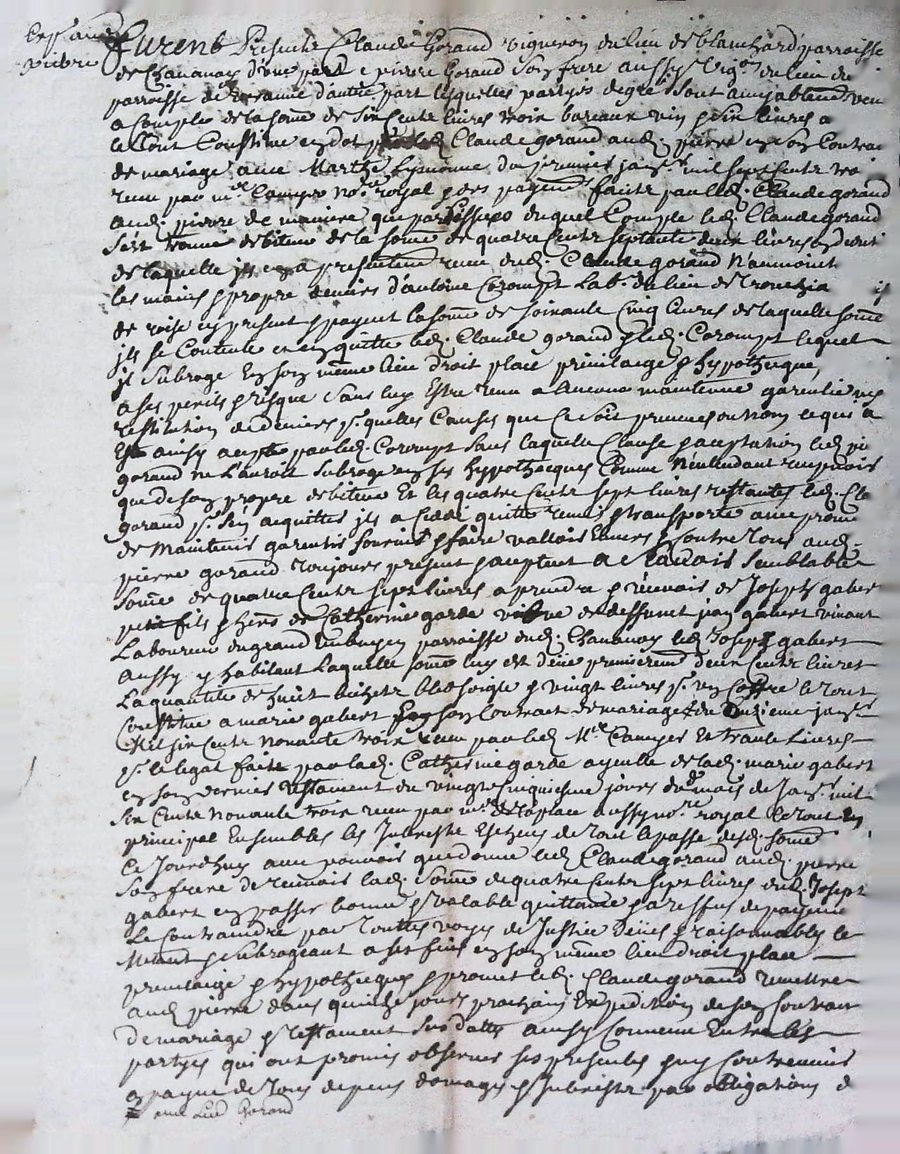 Exp^e au d^
pierre
Furent Presents Claude Gorand vigneron du lieu de blanchard parroisse
de Chavanay d'une part & pierre Gorand son frere aussy vig^on du lieu de
parroisse de d'autre part lesquelles partyes de gré sont amyablement venu
a Compte de la some de six cents livres trois bareaux vin & six livres a
le tout Constitué en dot Claude gorand aud. pierre en son Contrac
de mariage avec Marthe du premier janv^er mil sept cents tro
receu par m^e Camyer no^re royal & des payem^ faits par led. Claude gorand
aud. pierre de maniere que par l'issue duquel Compte led. Claude gorand
s'est trouvé debiteur de la some de quatre cents septante deux livres
de laquelle il en a presentement receu dud. Claude gorand
les mains & propre deniers d'antoine Corompt Lab^r du lieu de
de roise en present & payent la some de soixante cinq livres de laquelle some
il se Contente et en quitte led. Claude gorand & led. Corompt lequel
il subroge en son mesme lieu droit place privilaige & hypotheque,
a ses perils & risque sans luy estre tenu a aucune maintenue garentie ny
restitution de deniers p^r quelles Causes que Ce soit preveues ou non ce qui a
Esté ainsy acepté par led. Corompt sans laquelle Clause & aceptation led. pi
gorand ne l'auroit subrogé en ses hypotheques Comme n'entendant recepvoir
que de son propre debiteur Et les quatre cents sept livres restantes led. Cla
gorand p^r s'en acquitter il a Cedé quitté remis & transporté avec promes
de maintenir garentir fournir & faire valloir Envers & Contre tous aud.
pierre gorand toujours present & aceptant a scavoir semblable
some de quatre cents sept livres a prendre & recevoir de Joseph gabert
petit fils & heri^ de Catherine garde vefve de deffunt jean gabert vivant
Laboureur du grand Embuyen parroisse dud. Chavanay led. Joseph gabert
aussy y habitant Laquelle some luy est deue premierem^ deux cents livres
La quantité de huict bichets bled soigle & vingt livres p^r un Coffre le tout
Constitué a marie gabert en son Contract de mariage du unzieme janv^er
Mil six cents nonante trois receu par led. M^e Camyer Et trante Livres
p^r le legat fait par lad. Catherine garde ayeulle de lad. marie gabert
en son dernier testament du vingt cinquiesme jours dud. mois de janv^er mil
six cents nonante trois receu par m^e delaplace aussy no^re royal le tout En
principal Ensembles les Intrests Escheus de tout le passé desd. some
Ce Jourdhuy avec pouvoir que donne led. Claude gorand aud. pierre
son frere de recevoir lad. some de quatre cents sept livres dud. Joseph
gabert en passer bonne & valable quittance & a reffus de payem^
Le Contraindre par touttes voyes de Justice deues & raisonnables le
Metant & subrogeant a ses fins en son mesme lieu droit place
privilaige & hypotheques & promet led. Claude gorand remettre
aud. pierre dans quinze jours prochain Expedition de son Contrac
de mariage & testament susdattés ainsy Convenu Entre les
partyes qui ont promis observer ses presentes & ny Contrevenir
a payne de tous depens domages & Intrests par obligations d
avec Led Gorand